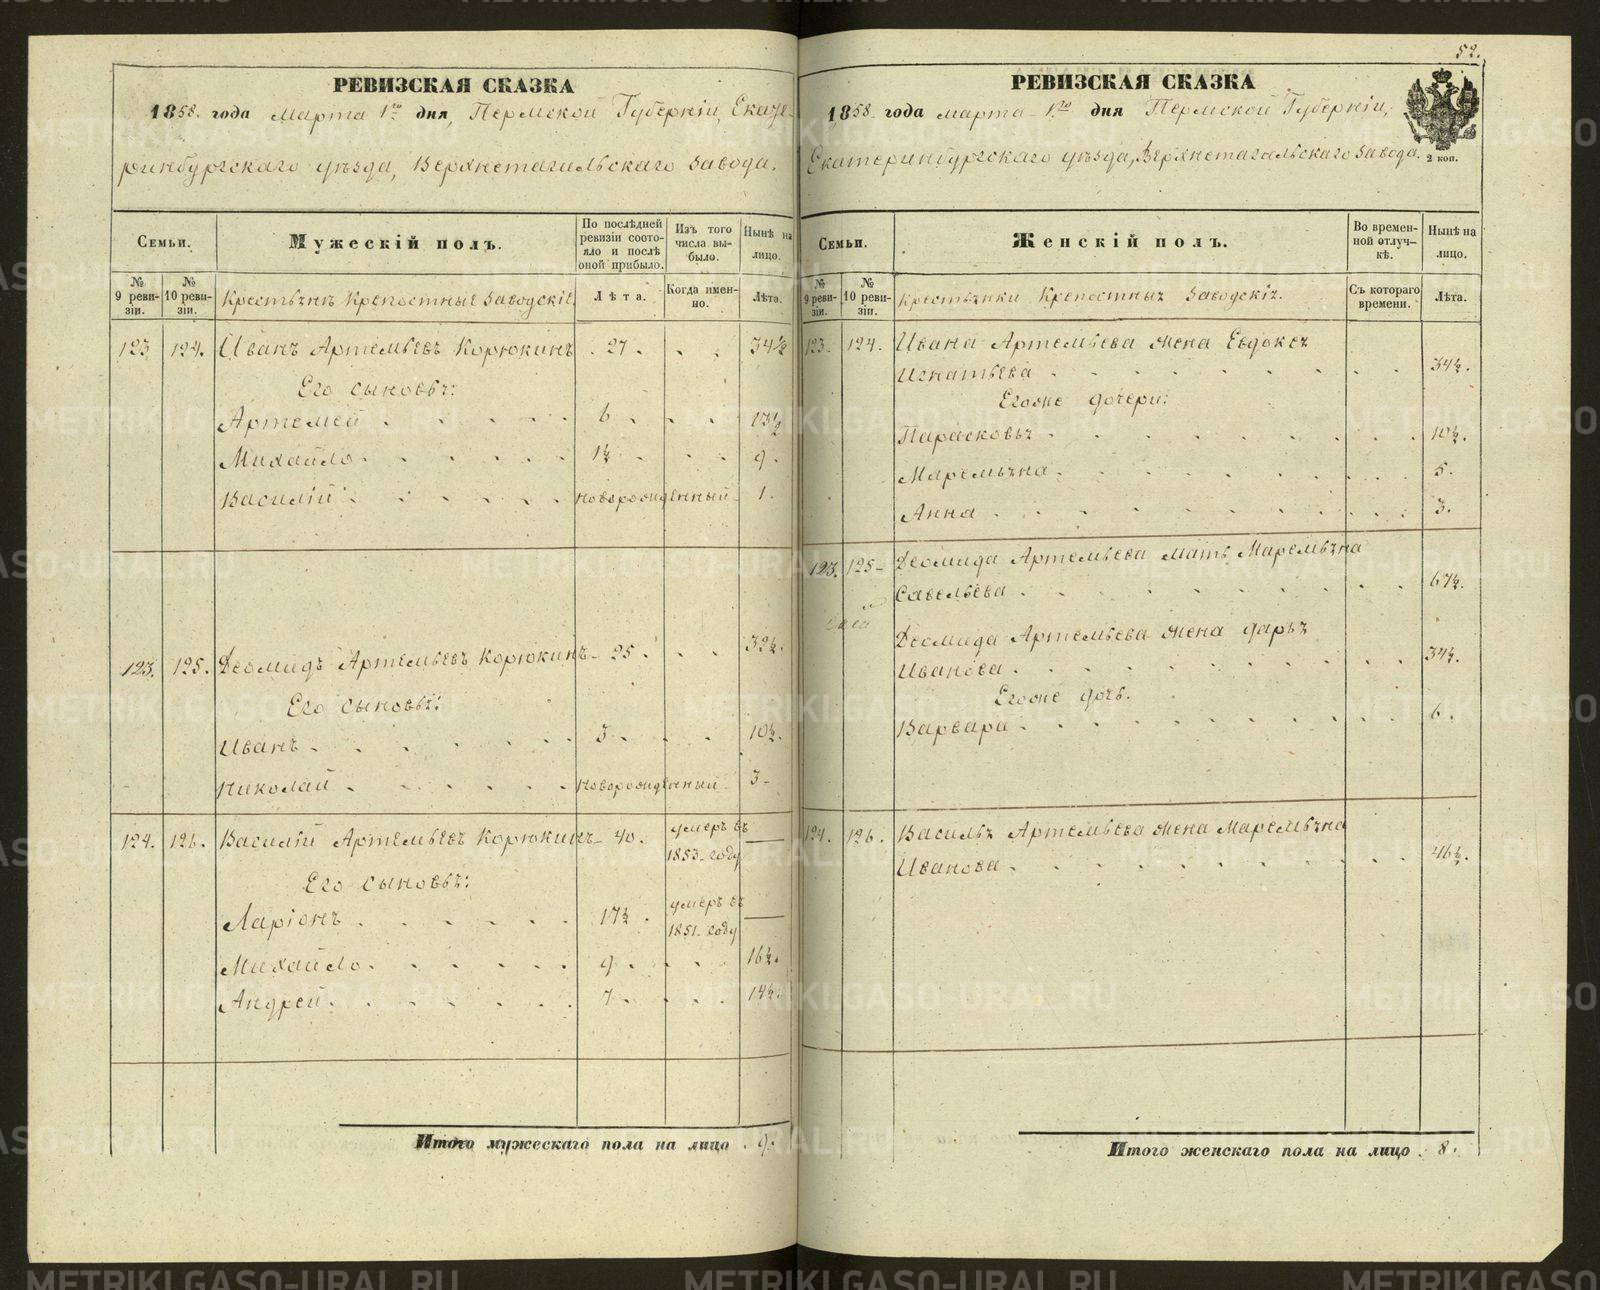 52.
РЕВИЗСКАЯ СКАЗКА
1858. года Марта 1го дня, Пермской Губерніи, Екате-
ринбургскаго уѣзда, Верхнетагильскаго Завода.
Семьи.
Мужескій полъ.
По послѣдней ревизіи состояло и послѣ оной прибыло.
Изъ того числа выбыло.
Нынѣ на лицо.
№ 9 ревизіи.
№ 10 ревизіи.
Крестьянѣ Крѣпостные Заводскіе
Лѣта.
Когда именно.
Лѣта.
123 124. Иванъ Артемьевъ Корюкинъ . 27 . . . 34½
Его сыновья:
Артемей . . . . . 6 . . . 13½
Михайло . . . . . 1½ . . . 9 .
Василій . . . . . новорожденный 1.
123. 125. Деомидъ Артемьевъ Корюкинъ 25 . . . 32½.
Его сыновья:
Иванъ . . . . . . 3 . . . 10½.
Николай . . . . . Новорожденный 3
124. 126. Василій Артемьевъ Корюкинъ 40. умеръ въ
1853. году
Его сыновья:
Ларіонъ . . . . . 17½ . умеръ въ
1851. году
Михайло . . . . . 9 . . . 16½.
Андрей . . . . . . 7 . . . 14½.
Итого мужескаго пола на лицо . 9.
РЕВИЗСКАЯ СКАЗКА
1858 года марта 1го дня Пермской Губерніи,
Екатеринбургскаго уѣзда, Верхнетагильскаго Завода.
2 коп.
Семьи.
Женскій полъ.
Во временной отлучкѣ.
Нынѣ на лицо.
№ 9 ревизіи.
№ 10 ревизіи.
Крестьянки Крѣпостныя Заводскія.
Съ котораго времени.
Лѣта.
123. 124. Ивана Артемьева жена Евдокея
Игнатьева . . . . . . . . 34½.
Егоже дочери:
Парасковья . . . . . . . . 10½.
Маремьяна . . . . . . . . 5.
Анна . . . . . . . . . 3.
123. 125 Деомида Артемьева мать Маремьяна
Савельева . . . . . . . . 67½.
Деомида Артемьева жена Дарья
Иванова . . . . . . . . 34½.
Егоже дочь.
Варвара . . . . . . . . 6 .
124. 126. Василья Артемьева жена Маремьяна
Иванова . . . . . . . . 46½.
Итого женскаго пола на лицо . 8.
METRIKI.GASO-URAL.RU